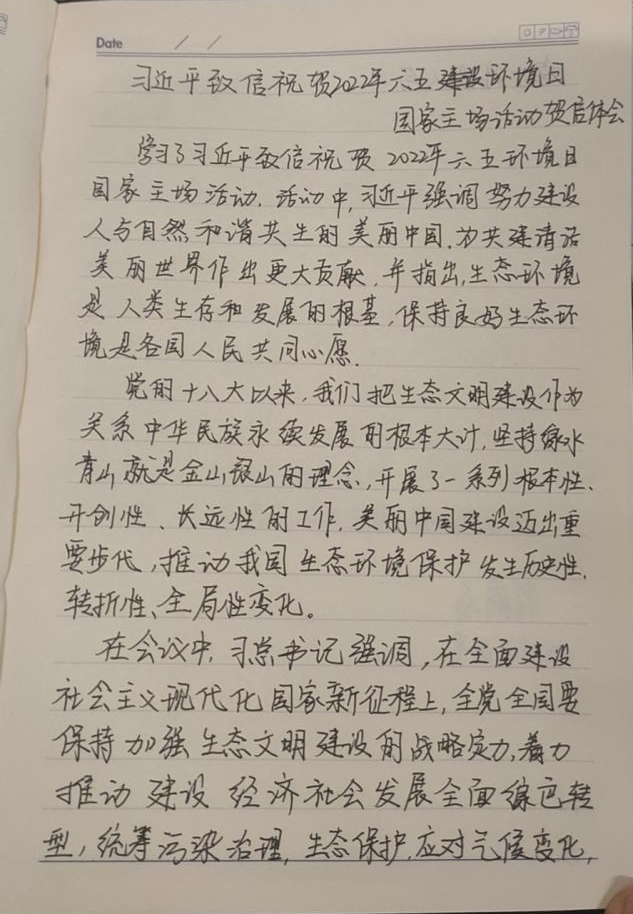 Date / /
习近平致信祝贺2022年六五建设环境日
国家主场活动贺信体会
学习了习近平致信祝贺2022年六五环境日
国家主场活动.活动中,习近平强调努力建设
人与自然和谐共生的美丽中国.为共建清洁
美丽世界作出更大贡献,并指出,生态环境
是人类生存和发展的根基,保持良好生态环
境是各国人民共同心愿.
党的十八大以来,我们把生态文明建设作为
关系中华民族永续发展的根本大计,坚持绿水
青山就是金山银山的理念,开展了一系列根本性、
开创性、长远性的工作,美丽中国建设迈出重
要步伐,推动我国生态环境保护发生历史性、
转折性、全局性变化。
在会议中,习总书记强调,在全面建设
社会主义现代化国家新征程上,全党全国要
保持加强生态文明建设的战略定力,着力
推动建设经济社会发展全面绿色转
型,统筹污染治理,生态保护,应对气候变化,